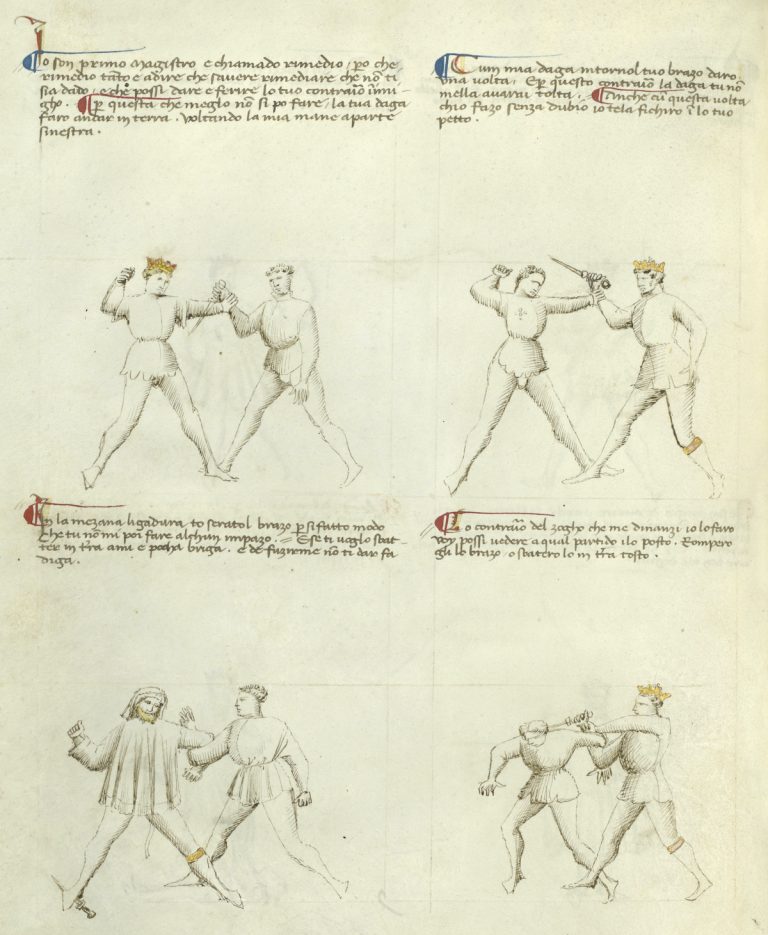 Io son primo magistro e chiamado rimedio, po che
rimedio tãto e adire che savere rimediare che nõ ti
sia dado, e che possi dare e ferire lo tuo contrãio inimi-
gho. Per questa che meglo nõ si po fare, la tua daga
faro andar in terra. voltando la mia mane aparte
sinestra.
Cum mia daga intorno l tuo brazo daro
una volta. E per questo contrãio la daga tu nõ
mella avarai tolta. Anche cũ questa volta
chio fazo senza dubio io te la fichiro ĩ lo tuo
petto.
In la mezana ligadura to serato l brazo p si fatto modo
che tu nõ mi poi fare alchun impazo. E se ti voglo sbat-
ter in tr̃a a mi e pocha briga. e de fuzirme nõ ti dar fa
diga.
Lo contrãio del zogho che me dinanzi io lo faro
voy possi vedere a qual partido i lo posto. Rompero
gli lo brazo, o sbatero lo in tr̃a tosto.